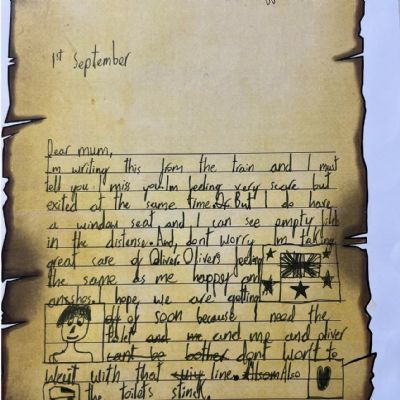 1st September
Dear mum,
I'm writing this from the train and I must
tell you I miss you. I'm feeling very scare but
exited at the same time. But I do have
a window seat and I can see empty
in the distensy. And, dont worry I'm taking
great care of Oliver. Oliver's feeling
the same as me happy and
hope we are getting
off soon because I need the
toilet and me and me and oliver
cant be bother dont wan't to
wait with that line. Also
the toilets stinck.